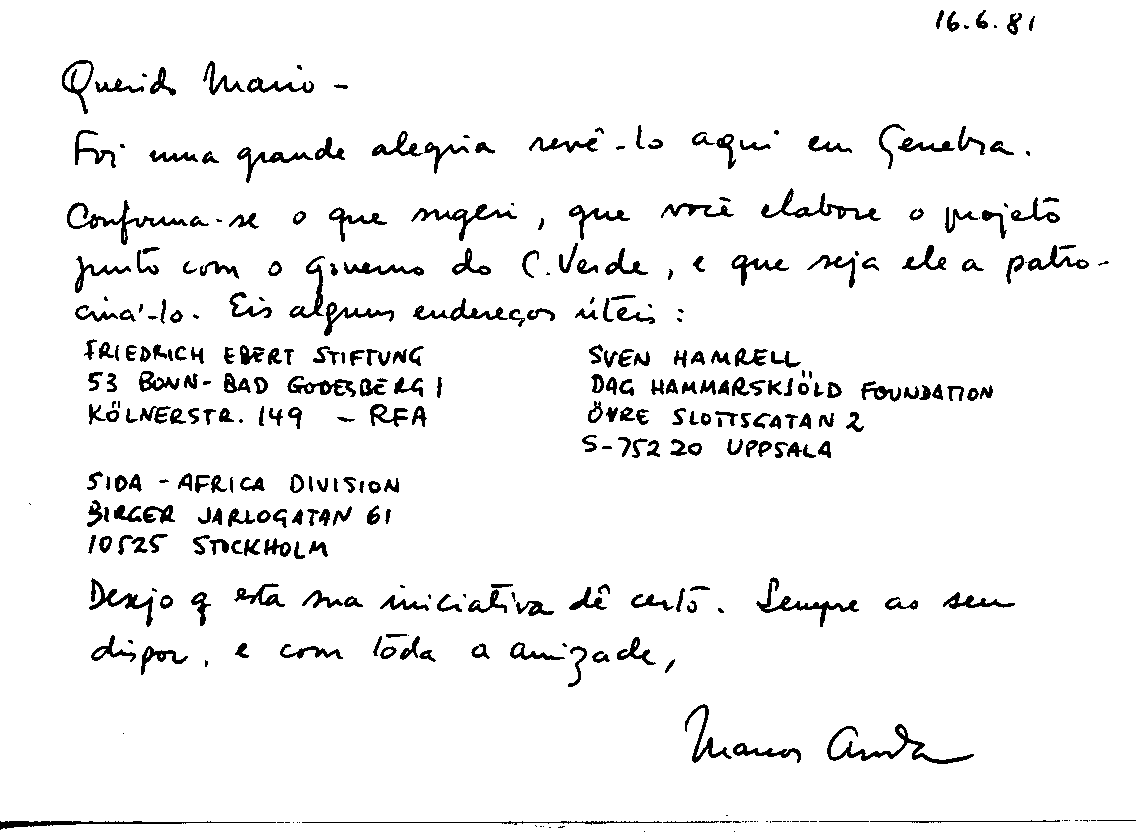 16.6.81
Querido Mario -
Foi uma grande alegria revê-lo aqui em Genebra.
Conforma-se o que sugeri, que você elabore o projeto
junto com o governo do C. Verde, e que seja ele a patro-
ciná-lo. Eis alguns endereços úteis:
FRIEDRICH EBERT STIFTUNG
53 BONN-BAD GODESBERG 1
KÖLNERSTR. 149 - RFA
SVEN HAMRELL
DAG HAMMARSKJÖLD FOUNDATION
ÖVRE SLOTTSGATAN 2
S-752 20 UPPSALA
SIDA - AFRICA DIVISION
BIRGER JARLOGATAN 61
10525 STOCKHOLM
Desejo q esta sua iniciativa dê certo. Sempre ao seu
dispor, e com tôda a amizade,
Marcos Arruda